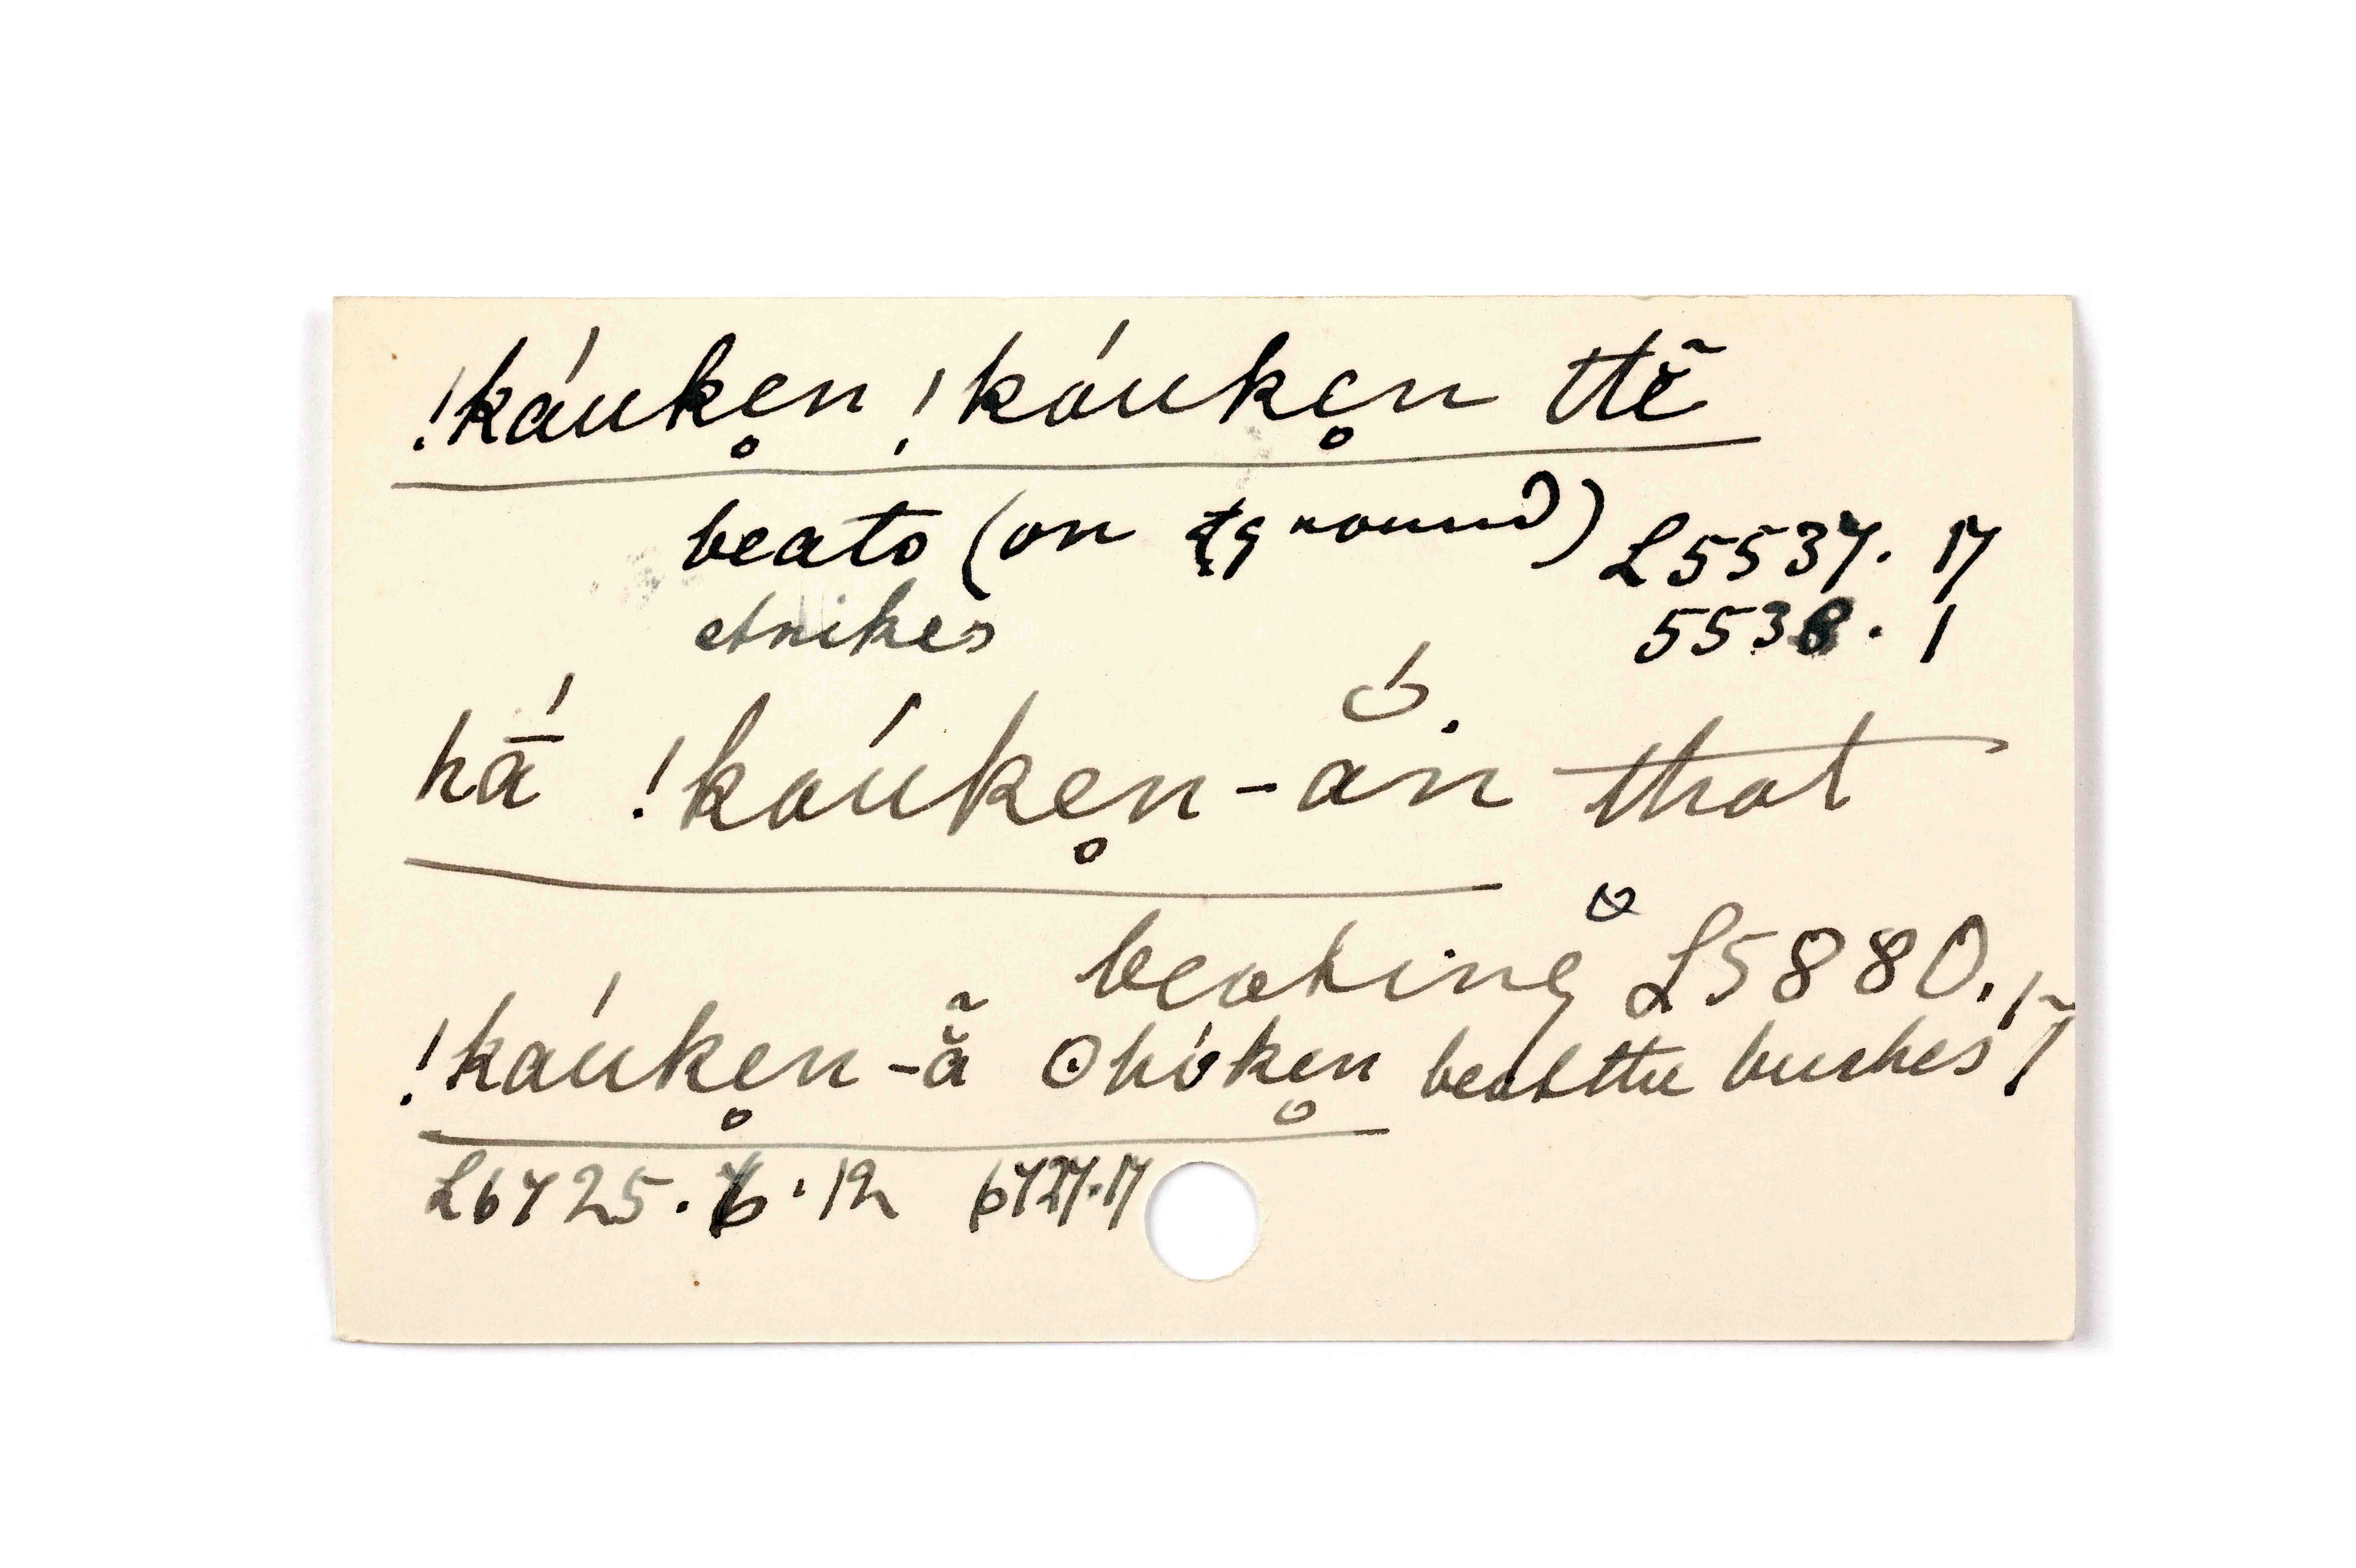 !káuken̥ !káuken̥ ttẽ̆
beats (on ground) L5537. 17
strikes 5538. 1
hā́ !kaúken̥-ăn that
beating L5880.
!kaúken̥-ã̆ ʘhóken̥ beat the bushes
L6725. 6. 12 6727.17